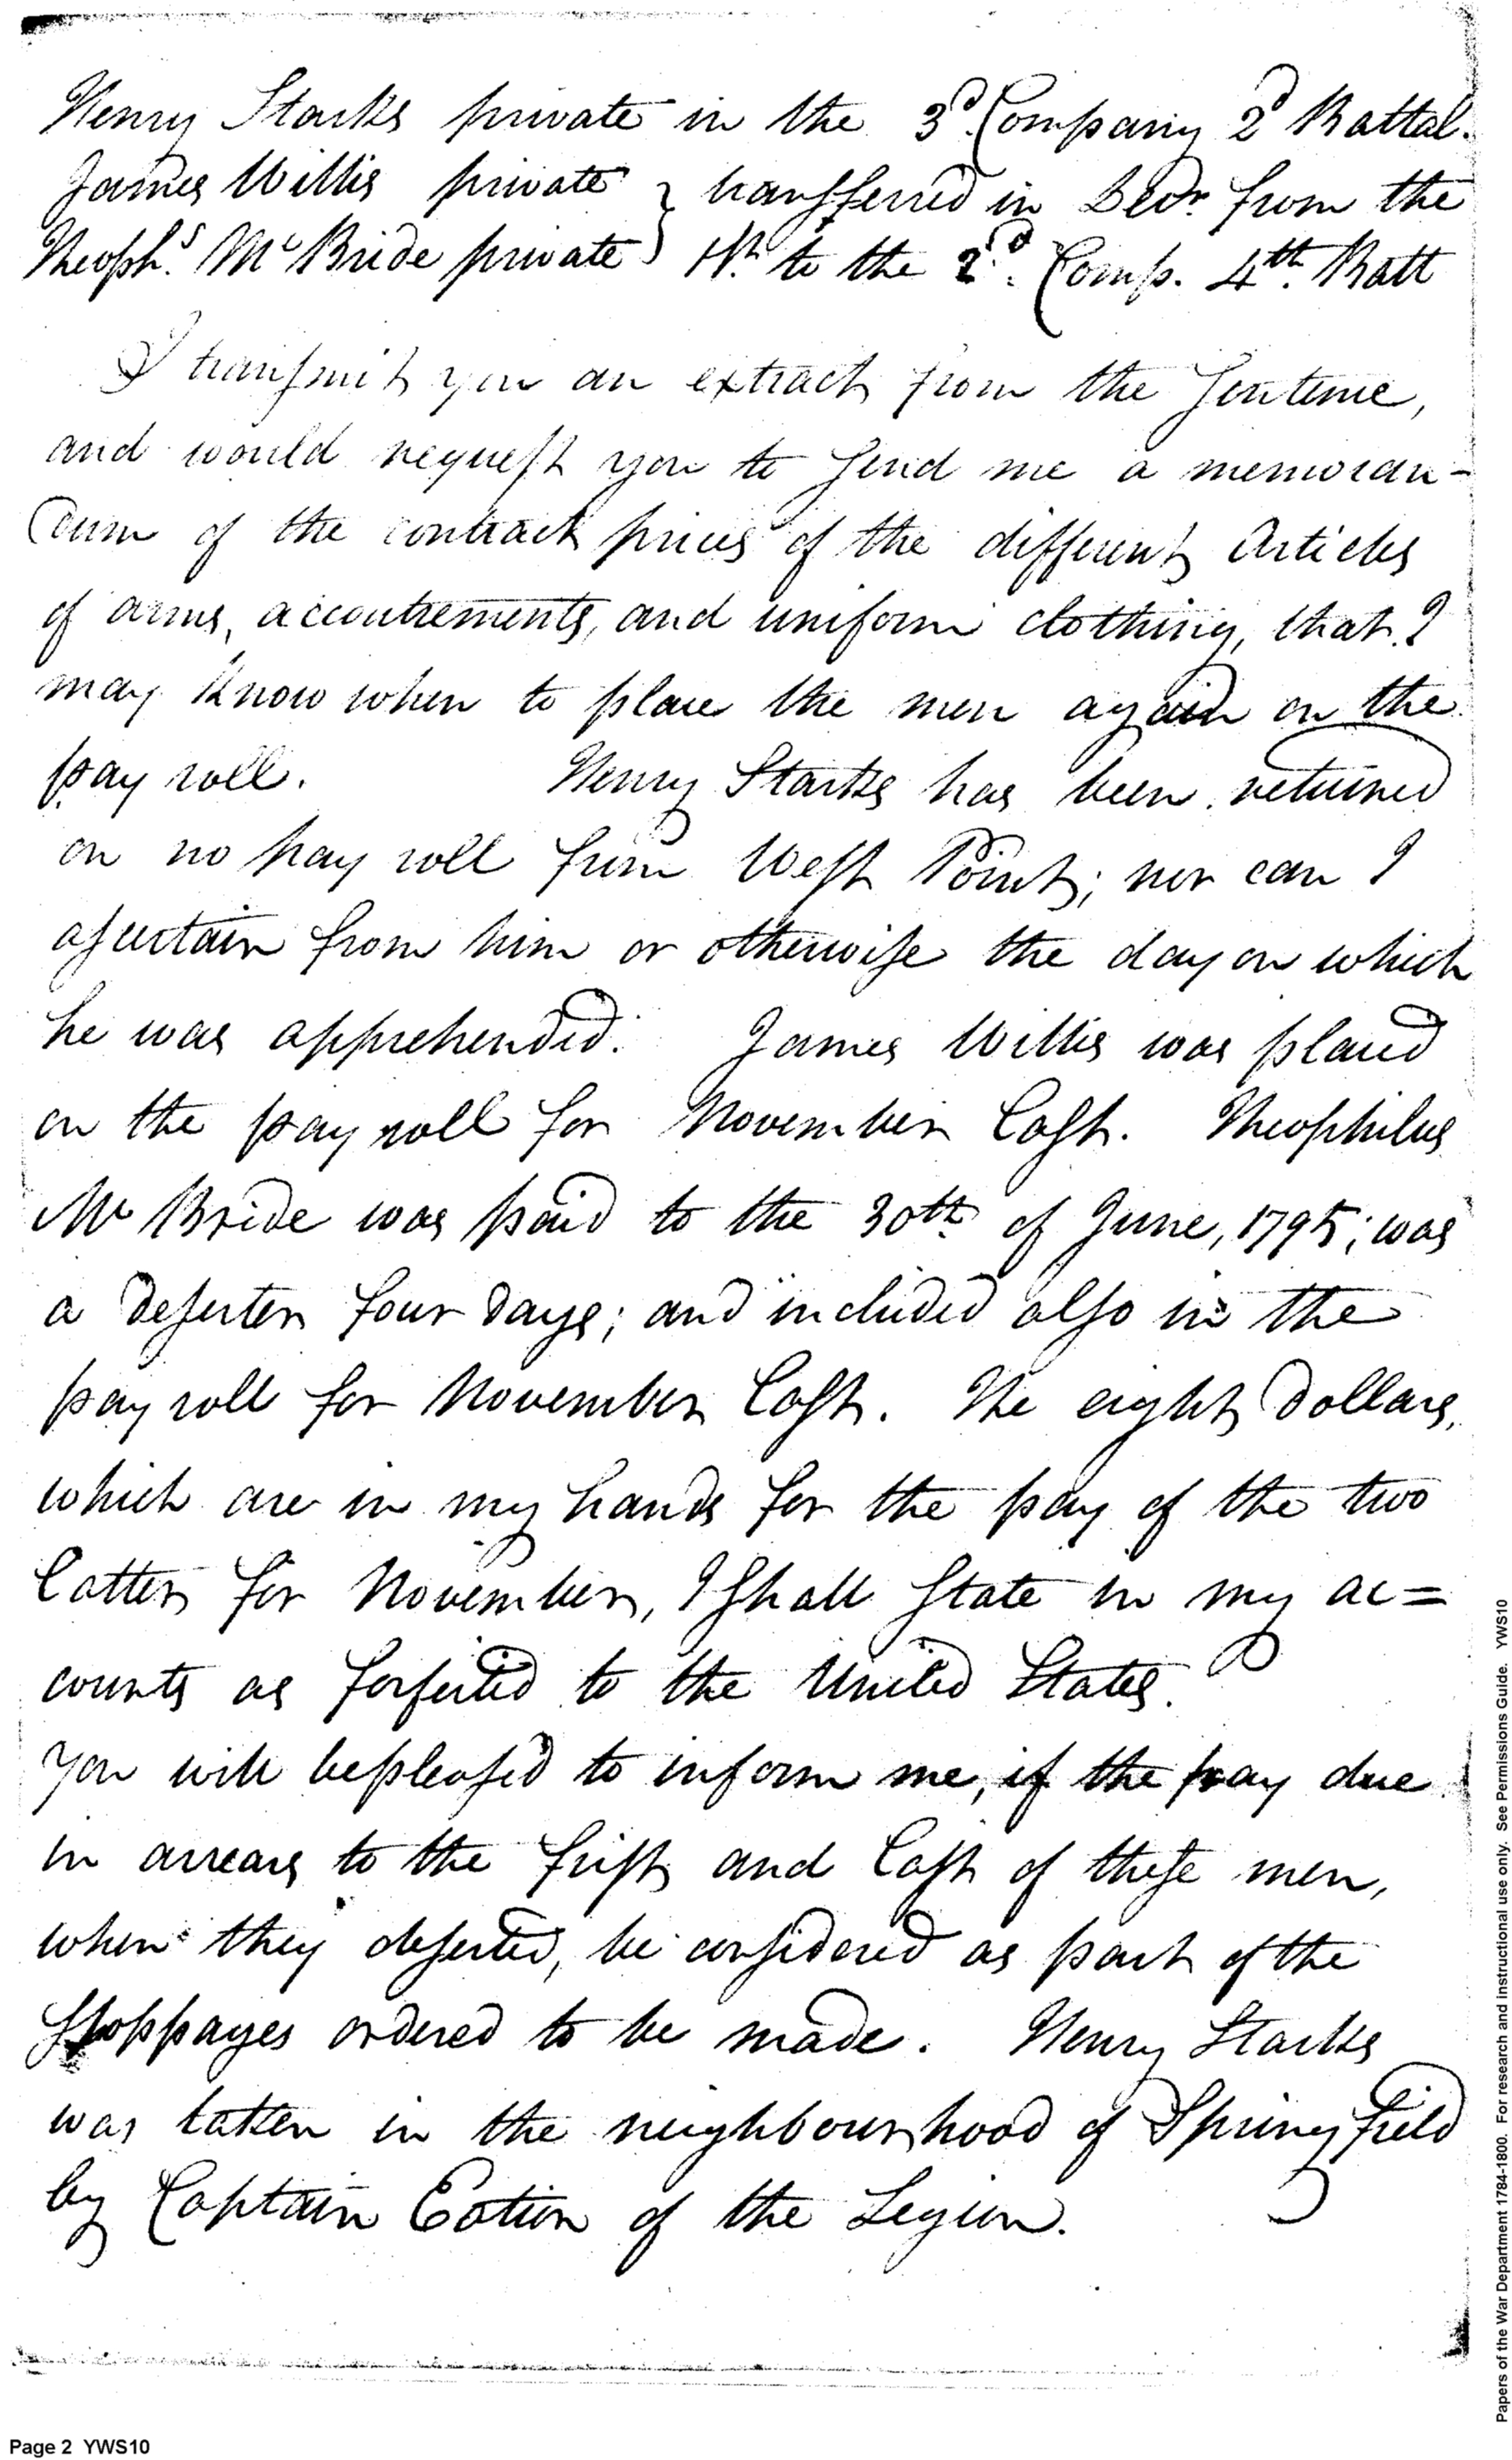 Henry Starks private in the 3d. Company 2d Battal.
James Willis private } transferred in Decr. from the
Theophs. McBride private } to the 2d. Comp. 4th. Batt
I transmit you an extract from the sentence,
and would request you to send me a memoran-
dum of the contract prices of the different Articles
of arms, accoutrements, and uniform clothing, that I
may know when to place the men again on the
pay roll. Henry Starks has been returned
on no pay roll from West Point; nor can I
ascertain from him or otherwise the day on which
he was apprehended. James Willis was placed
on the pay roll for November last. Theophilus
McBride was paid to the 30th of June, 1795; was
a deserter four days; and included also in the
pay roll for November last. The eight dollars,
which are in my hands for the pay of the two
latter for November, I shall state in my ac=
counts as forfeited to the United States.
You will be pleased to inform me, if the pay due
in arrears to the first and last of these men,
when they deserted, be considered as part of the
stoppages ordered to be made. Henry Starks
was taken in the neighbourhood of Springfield
by Captain Eaton of the Legion.
Papers of the War Department 1784-1800. For research and instructional use only. See Permissions Guide. YWS10
Page 2 YWS10